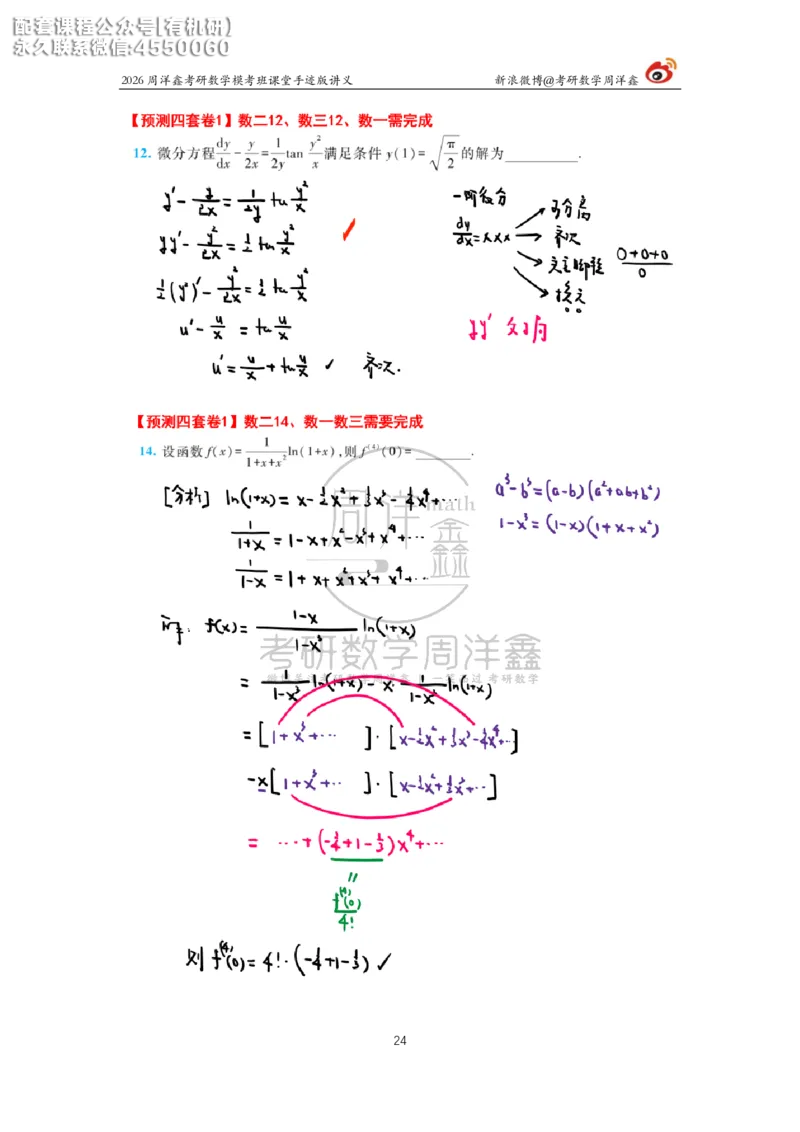 配套课程公众号[有机研]
永久联系微信:4550060
2026 周洋鑫考研数学模考班课堂手迹版讲义 新浪微博@考研数学周洋鑫
【预测四套卷1】数二12、数三12、数一需完成
12. 微分方程 dy/dx - y/2x = 1/2y tan y²/x 满足条件 y(1)= √(π/2) 的解为________.
y' - y/2x = 1/2y tan y²/x
yy' - y²/2x = 1/2 tan y²/x
1/2 (y²)' - y²/2x = 1/2 tan y²/x
u' - u/x = tan u/x
u' = u/x + tan u/x ✓ 齐次.
一阶微分
dy/dx = xxx
可分离
齐次
换元
0+0+0/0
【预测四套卷1】数二14、数一数三需要完成
14. 设函数 f(x)= 1/(1+x+x²) ln(1+x),则 f⁽⁴⁾(0)=________.
[分析] ln(1+x) = x - 1/2 x² + 1/3 x³ - 1/4 x⁴ + ⋯
1/(1+x) = 1 - x + x² - x³ + x⁴ + ⋯
1/(1-x) = 1 + x + x² + x³ + x⁴ + ⋯
a³-b³=(a-b)(a²+ab+b²)
1-x³=(1-x)(1+x+x²)
f(x) = (1-x)/(1-x³) ln(1+x)
= 1/(1-x³) ln(1+x) - x · 1/(1-x³) ln(1+x)
= [1+x³+⋯ ] · [x - 1/2 x² + 1/3 x³ - 1/4 x⁴ + ⋯]
-x [1+x³+⋯ ] · [x - 1/2 x² + 1/3 x³ + ⋯]
= ⋯ + (-1/4 + 1 - 1/3) x⁴ + ⋯
f⁽⁴⁾(0)/4!
则 f⁽⁴⁾(0) = 4! · (-1/4 + 1 - 1/3) ✓
周洋鑫
math
考研数学周洋鑫
24